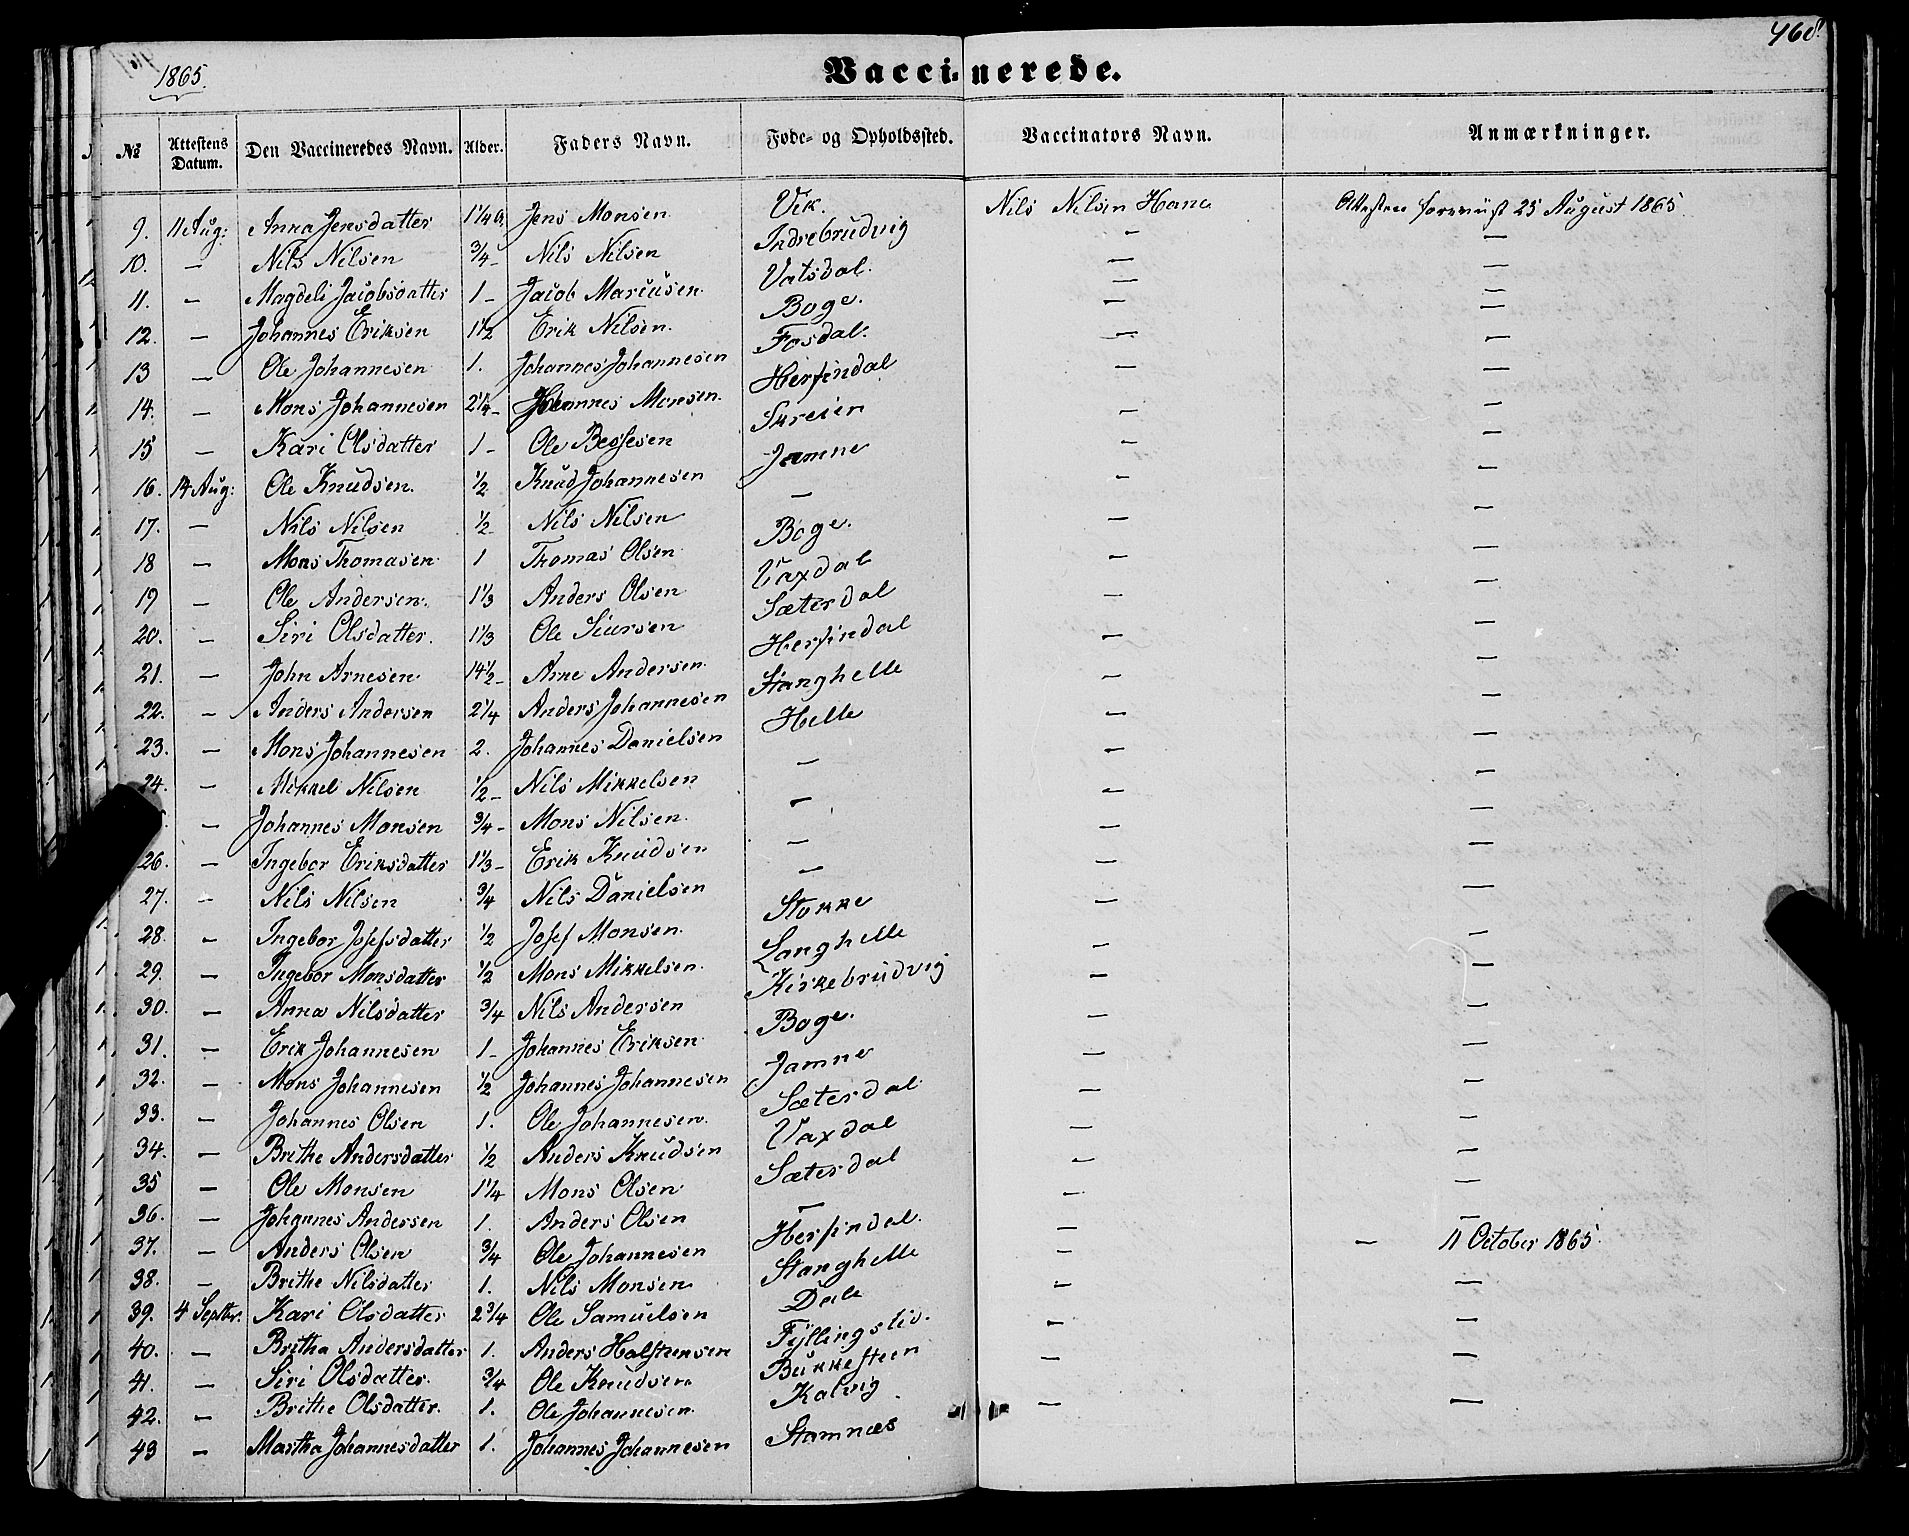 1865.
Vaccinerede.
468
№ Attestens Datum. Den Vaccineredes Navn. Alder. Faders Navn. Føde- og Opholdssted. Vaccinators Navn. Anmærkninger.
9. 11 Aug: Anna Jensdatter 1 1/4 Jens Monsen Vik. Nils Nilsen Attesten foreviist 25 August 1865
10. — Nils Nilsen 3/4 - Nils Nilsen Indrebrudvig — —
11. — Magdeli Jacobsdatter 1 - Jacob Marcusen Vatsdal. — —
12. — Johannes Eriksen 1 1/2 Erik Nilsen. Boge. — —
13 — Ole Johannesen 1. Johannes Johannesen Fosdal. — —
14. — Mons Johannesen 2 1/4 - Johannes Monsen. Herfindal — —
15 — Kari Olsdatter 1 - Ole Bessesen Skreien — —
16. 14 Aug: Ole Knudsen. 1/2 Knud Johannesen Jamne — —
17. — Nils Nilsen 1/2 - Nils Nilsen — — —
18 — Mons Thomasen 1 Thomas Olsen Boge. — —
19 — Ole Andersen. 1 1/3 Anders Olsen Vaxdal — —
20. — Siri Olsdatter. 1 1/3 Ole Siursen Sæterdal — —
21. — John Arnesen 14 1/2 - Arne Andersen. Herfindal — —
22. — Anders Andersen 2 1/4 Anders Johannesen Stanghelle — —
23. — Mons Johannesen 2. Johannes Danielsen Helle — —
24. — Mikkel Nilsen 1/2 - Nils Mikkelsen — — —
— Johannes Monsen 3/4 - Mons Nilsen. — — —
26. — Ingebor Eriksdatter 1 1/3 - Erik Knudsen — — —
27. — Nils Nilsen 3/4 Nils Danielsen — — —
28. — Ingebor Josefsdatter 1/2 Josef Monsen. Stokke — —
29. — Ingebor Monsdatter 1/2 Mons Mikkelsen. Langhelle — —
30. — Anna Nilsdatter 3/4 Nils Andersen Kirkebrudvig — —
31. — Erik Johannesen 1 - Johannes Eriksen Boge. — —
32. — Mons Johannesen 1/2 Johannes Johannesen Jamne — —
33. — Johannes Olsen 1. Ole Johannesen. Sæterdal — —
34. — Brithe Andersdatter 1/2 Anders Knudsen Vaxdal — —
35 — Ole Monsen 1 1/4 Mons Olsen Sæterdal — —
36. — Johannes Andersen 1. Anders Olsen — — —
37. — Anders Olsen 3/4 Ole Johannesen Herfindal. — — 11 October 1865.
38. — Brithe Nilsdatter 1. Nils Monsen Stanghelle — —
39. 4 Septbr. Kari Olsdatter 2 3/4 Ole Samuelsen Dale — —
40. — Britha Andersdatter 1. Anders Halsteensen Fyllingsliv. — —
41. — Siri Olsdatter. 3/4 Ole Knudsen Bukkesteen — —
42. — Brithe Olsdatter. 1. Ole Johannesen Kalvig — —
43 — Martha Johannesdatter 1. Johannes Johannesen Stamnæs